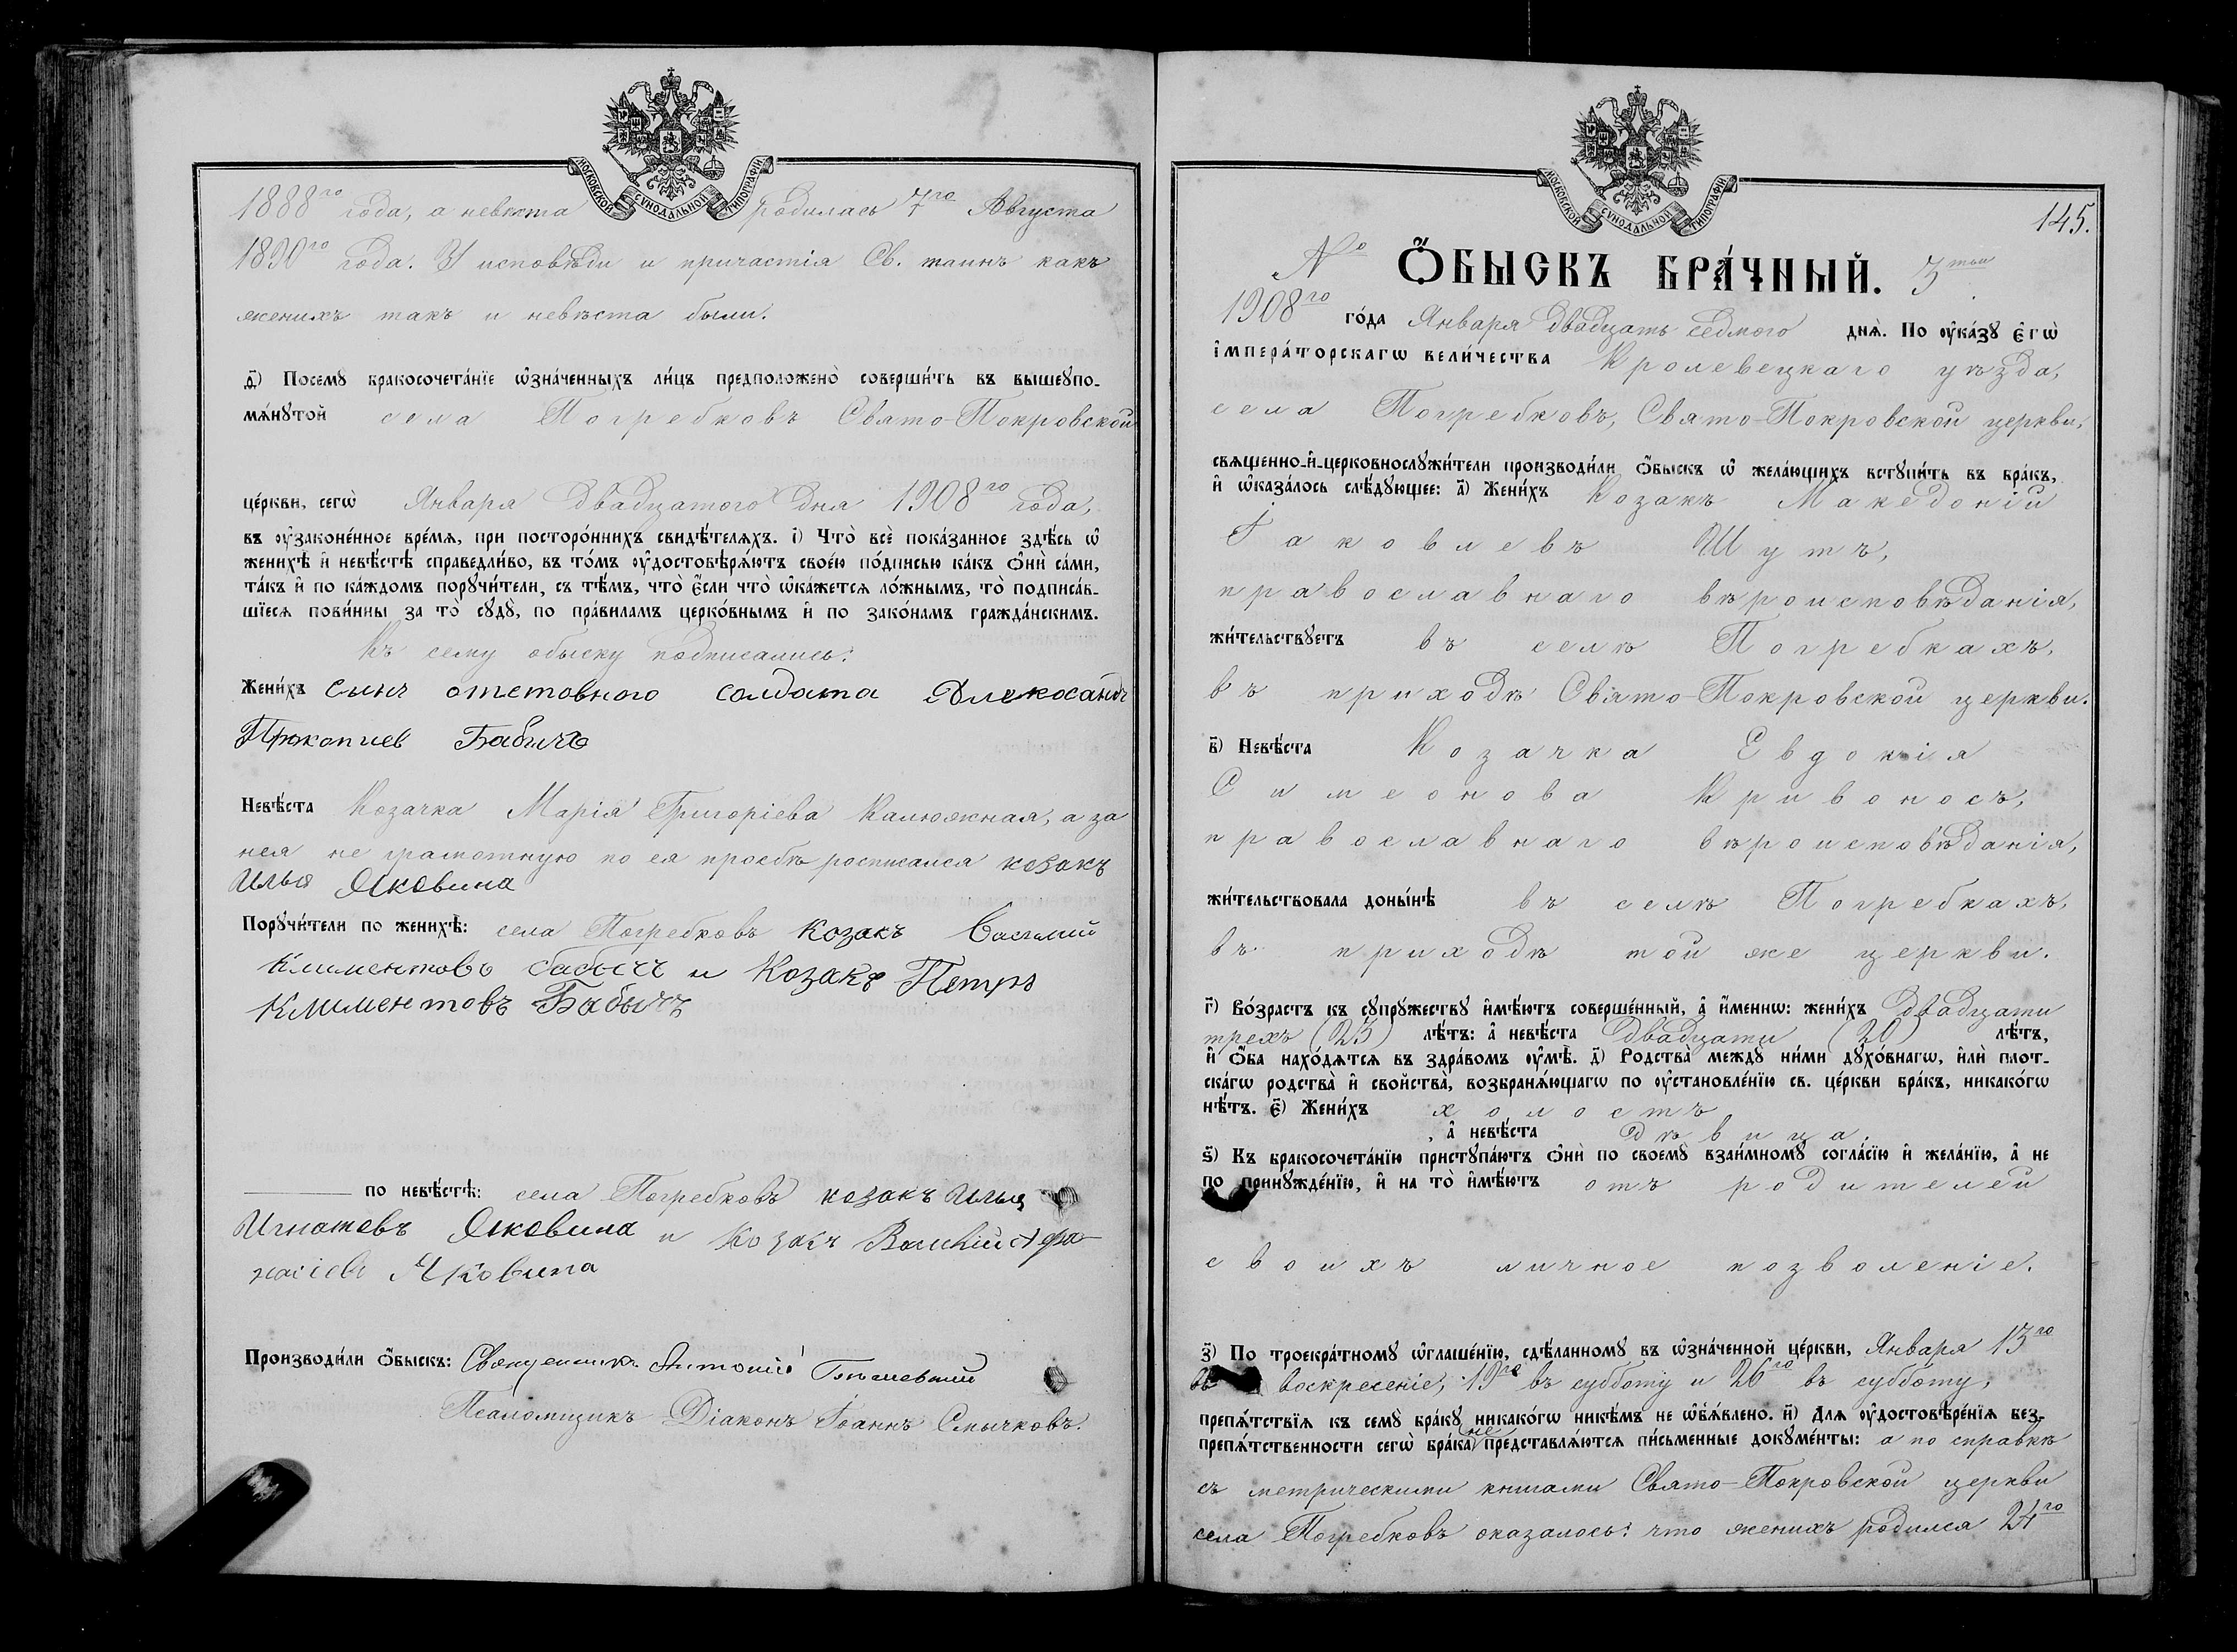 МОСКОВСКОЙ СѴНОДАЛЬНОЙ ТИПОГРАФІИ
1888го года, а невѣста родилась 7го Августа
1890го года. У исповѣди и причастія Св. таинъ какъ
женихъ такъ и невѣста были.
ѳ҃) Посемꙋ бракосочета́нїе ѡ҆зна́ченныхъ ли́цъ предположено̀ соверши́ть въ вышеꙋпо-
мѧ́нꙋтой села Погребковъ Свято-Покровской
це́ркви, сегѡ̀ Января двадцатого дня 1908го года,
въ ᲂу҆законе́нное вре́мѧ, при посторо́ннихъ свидѣ́телѧхъ. і҃) Что̀ всѐ пока́занное здѣ́сь ѡ҆
женихѣ̀ и҆ невѣ́стѣ справедли́во, въ то́мъ ᲂу҆достовѣрѧ́ютъ свое́ю по́дписью ка́къ ѻ҆нѝ са́ми,
та́къ и҆ по ка́ждомъ порꙋчи́тели, съ тѣ́мъ, что̀ є҆́сли что̀ ѡ҆ка́жетсѧ ло́жнымъ, то̀ подписа́в-
шїесѧ пови́нны за то̀ сꙋдꙋ̀, по пра́виламъ церко́внымъ и҆ по зако́намъ гражда́нскимъ.
Къ сему обыску подписались:
Жени́хъ сынъ отставного солдата Алекосандъ
Прокопиев Бабичъ
Невѣ́ста Козачка Марія Григоріева Калюжная, а за
нея не грамотную по ея просьбѣ росписался козакъ
Илья Яковина
Порꙋчи́тели по женихѣ̀: села Погребковъ Козакъ Василий
Климентовъ бабычъ и Козакъ Петръ
Климентовъ Бабычъ
по невѣ́стѣ: села Погребковъ козакъ Илья
Игнатевъ Яковина и Козакъ Васили Афа-
насіевъ Яковина
Производи́ли ѻ҆́быскъ: Священникъ Антоній
Псаломщикъ Діаконъ Іоаннъ Смычковъ.
МОСКОВСКОЙ СѴНОДАЛЬНОЙ ТИПОГРАФІИ
145.
№ Ѻ҆БЫСКЪ БРА́ЧНЫЙ. 3тій
1908го го́да Января двадцать седмого днѧ̀. По ᲂу҆ка́зꙋ є҆гѡ̀
і҆мпера́торскагѡ вели́чества Кролевецкаго уѣзда,
села Погребковъ, Свято-Покровской церкви,
свѧщенно-и҆-церковнослꙋжи́тели производи́ли ѻ҆́быскъ ѡ҆ жела́ющихъ встꙋпи́ть въ бра́къ,
и҆ ѡ҆каза́лось слѣ́дꙋющее: а҃) Жени́хъ Козакъ Македоній
Іаковлевъ Шутъ,
православнаго вѣроисповѣданія,
жи́тельствꙋетъ въ селѣ Погребкахъ,
въ приходѣ Свято-Покровской церкви.
в҃) Невѣ́ста Козачка Евдокія
Симеонова Кривоносъ,
православнаго вѣроисповѣданія,
жи́тельствовала доны́нѣ въ селѣ Погребкахъ,
въ приходѣ той же церкви.
г҃) Во́зрастъ къ сꙋпрꙋ́жествꙋ и҆мѣ́ютъ соверше́нный, а҆ и҆́меннѡ: жени́хъ двадцати
трехъ (23) лѣ́тъ: а҆ невѣ́ста двадцати (20) лѣ́тъ,
и҆ ѻ҆́ба нахо́дѧтсѧ въ здра́вомъ ᲂу҆мѣ̀. д҃) Родства̀ междꙋ ни́ми дꙋхо́внагѡ, и҆лѝ плот-
ска́гѡ родства̀ и҆ сво́йства, возбранѧ́ющагѡ по ᲂу҆становле́нїю св. це́ркви бра́къ, никако́гѡ
нѣ́тъ. є҃) Жени́хъ холостъ
, а҆ невѣ́ста дѣвица.
ѕ҃) Къ бракосочета́нїю пристꙋпа́ютъ ѻ҆нѝ по своемꙋ̀ взаи́мномꙋ согла́сїю и҆ жела́нїю, а҆ не
по принꙋжде́нїю, и҆ на то̀ и҆мѣ́ютъ отъ родителей
своихъ личное позволеніе.
з҃) По троекра́тномꙋ ѡ҆глаше́нїю, сдѣ́ланномꙋ въ ѡ҆зна́ченной це́ркви, Января 13го
въ воскресеніе, 19го въ субботу и 26го въ субботу,
препѧ́тствїѧ къ семꙋ̀ бра́кꙋ никако́гѡ никѣ́мъ не ѡ҆б̾ѧ́влено. и҃) Длѧ ᲂу҆достовѣре́нїѧ без-
препѧ́тственности сегѡ̀ бра́ка не представлѧ́ютсѧ пи́сьменные докꙋме́нты: а по справкѣ
съ метрическими книгами Свято-Покровской церкви
села Погребковъ оказалось: что женихъ родился 24го